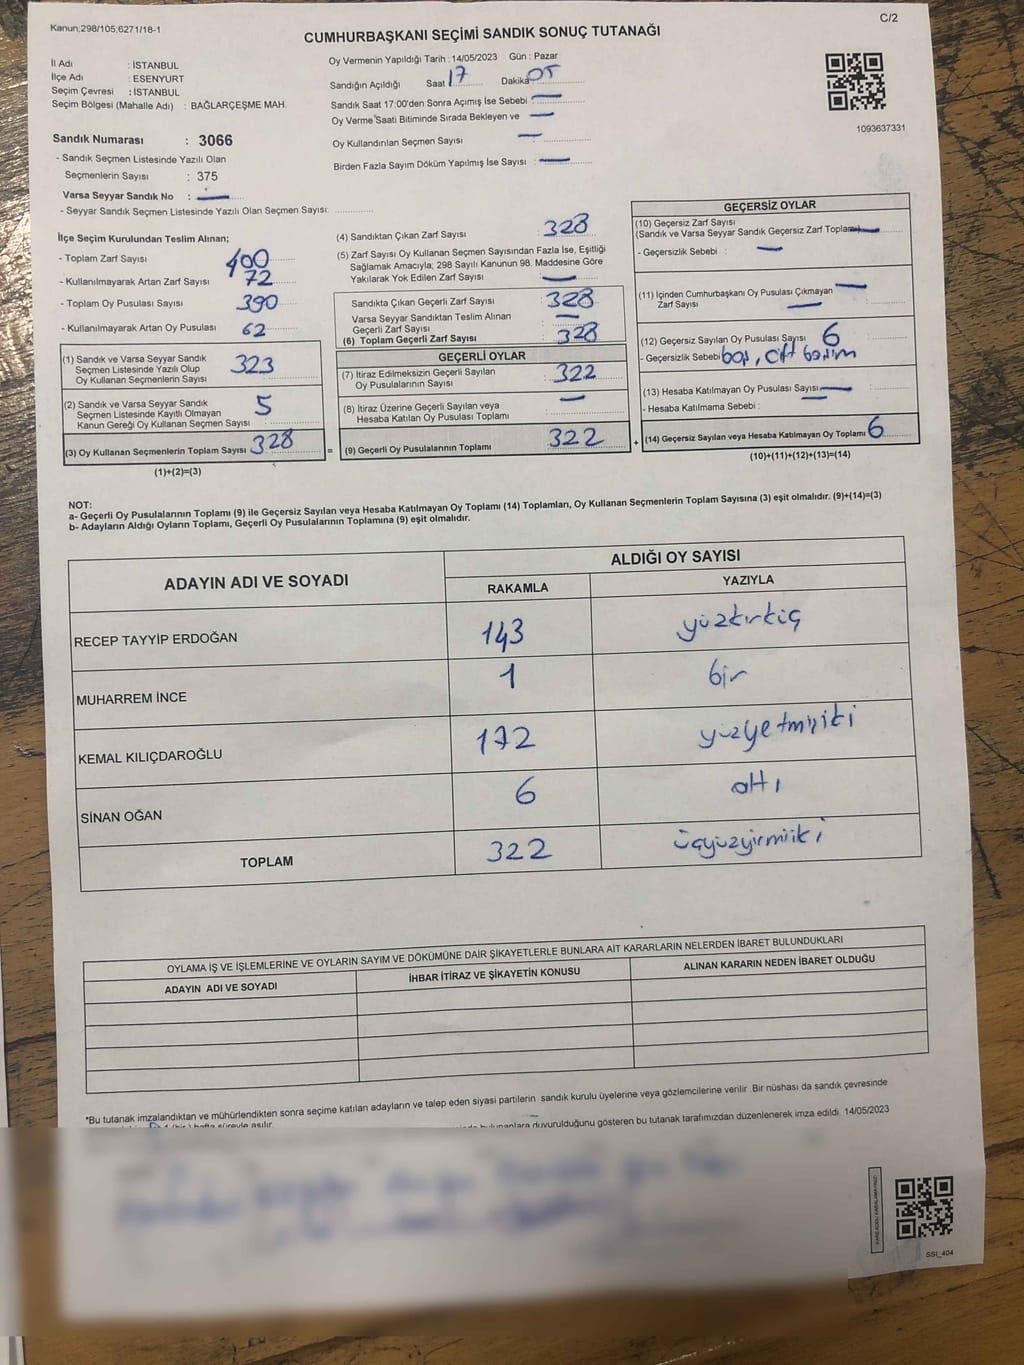 Kanun;298/105;6271/18-1
C/2
CUMHURBAŞKANI SEÇİMİ SANDIK SONUÇ TUTANAĞI
İl Adı : İSTANBUL
İlçe Adı : ESENYURT
Seçim Çevresi : İSTANBUL
Seçim Bölgesi (Mahalle Adı) : BAĞLARÇEŞME MAH.
Sandık Numarası : 3066
- Sandık Seçmen Listesinde Yazılı Olan
Seçmenlerin Sayısı : 375
Varsa Seyyar Sandık No : —
- Seyyar Sandık Seçmen Listesinde Yazılı Olan Seçmen Sayısı: ..............
Oy Vermenin Yapıldığı Tarih : 14/05/2023 Gün : Pazar
Sandığın Açıldığı Saat 17 Dakika 05
Sandık Saat 17:00'den Sonra Açımış İse Sebebi : —
Oy Verme Saati Bitiminde Sırada Bekleyen ve —
Oy Kullandırılan Seçmen Sayısı —
Birden Fazla Sayım Döküm Yapılmış İse Sayısı : —
1093637331
İlçe Seçim Kurulundan Teslim Alınan;
- Toplam Zarf Sayısı 400
- Kullanılmayarak Artan Zarf Sayısı 72
- Toplom Oy Pusulası Sayısı 390
- Kullanılmayarak Artan Oy Pusulası 62
(1) Sandık ve Varsa Seyyar Sandık
Seçmen Listesinde Yazılı Olup
Oy Kullanan Seçmenlerin Sayısı 323
(2) Sandık ve Varsa Seyyar Sandık
Seçmen Listesinde Kayıtlı Olmayan
Kanun Gereği Oy Kullanan Seçmen Sayısı 5
(3) Oy Kullanan Seçmenlerin Toplam Sayısı 328
(1)+(2)=(3)
(4) Sandıktan Çıkan Zarf Sayısı 328
(5) Zarf Sayısı Oy Kullanan Seçmen Sayısından Fazla İse, Eşitliği
Sağlamak Amacıyla; 298 Sayılı Kanunun 98. Maddesine Göre
Yakılarak Yok Edilen Zarf Sayısı : —
Sandıkta Çıkan Geçerli Zarf Sayısı : 328
Varsa Seyyar Sandıktan Teslim Alınan
Geçerli Zarf Sayısı : —
(6) Toplam Geçerli Zarf Sayısı : 328
GEÇERLİ OYLAR
(7) İtiraz Edilmeksizin Geçerli Sayılan
Oy Pusulalarının Sayısı : 322
(8) İtiraz Üzerine Geçerli Sayılan veya
Hesaba Katılan Oy Pusulası Toplamı : —
(9) Geçerli Oy Pusulalarının Toplamı 322
=
+
GEÇERSİZ OYLAR
(10) Geçersiz Zarf Sayısı
(Sandık ve Varsa Seyyar Sandık Geçersiz Zarf Toplamı) —
- Geçersizlik Sebebi : —
(11) İçinden Cumhurbaşkanı Oy Pusulası Çıkmayan —
Zarf Sayısı —
(12) Geçersiz Sayılan Oy Pusulası Sayısı 6
- Geçersizlik Sebebi boş, çift basım
(13) Hesaba Katılmayan Oy Pusulası Sayısı —
- Hesaba Katılmama Sebebi : —
(14) Geçersiz Sayılan veya Hesaba Katılmayan Oy Toplamı 6
(10)+(11)+(12)+(13)=(14)
NOT:
a- Geçerli Oy Pusulalarının Toplamı (9) ile Geçersiz Sayılan veya Hesaba Katılmayan Oy Toplamı (14) Toplamları, Oy Kullanan Seçmenlerin Toplam Sayısına (3) eşit olmalıdır. (9)+(14)=(3)
b- Adayların Aldığı Oyların Toplamı, Geçerli Oy Pusulalarının Toplamına (9) eşit olmalıdır.
ADAYIN ADI VE SOYADI
ALDIĞI OY SAYISI
RAKAMLA YAZIYLA
RECEP TAYYİP ERDOĞAN 143 yüzkırküç
MUHARREM İNCE 1 bir
KEMAL KILIÇDAROĞLU 172 yüzyetmişiki
SİNAN OĞAN 6 altı
TOPLAM 322 üçyüzyirmiiki
OYLAMA İŞ VE İŞLEMLERİNE VE OYLARIN SAYIM VE DÖKÜMÜNE DAİR ŞİKAYETLERLE BUNLARA AİT KARARLARIN NELERDEN İBARET BULUNDUKLARI
ADAYIN ADI VE SOYADI İHBAR İTİRAZ VE ŞİKAYETİN KONUSU ALINAN KARARIN NEDEN İBARET OLDUĞU
*Bu tutanak imzalandıktan ve mühürlendikten sonra seçime katılan adayların ve talep eden siyasi partilerin sandık kurulu üyelerine veya gözlemcilerine verilir Bir nüshası da sandık çevresinde
1 (bir) hafta süreyle asılır. bulunanlara duyurulduğunu gösteren bu tutanak tarafımızdan düzenlenerek imza edildi. 14/05/2023
SSI_404